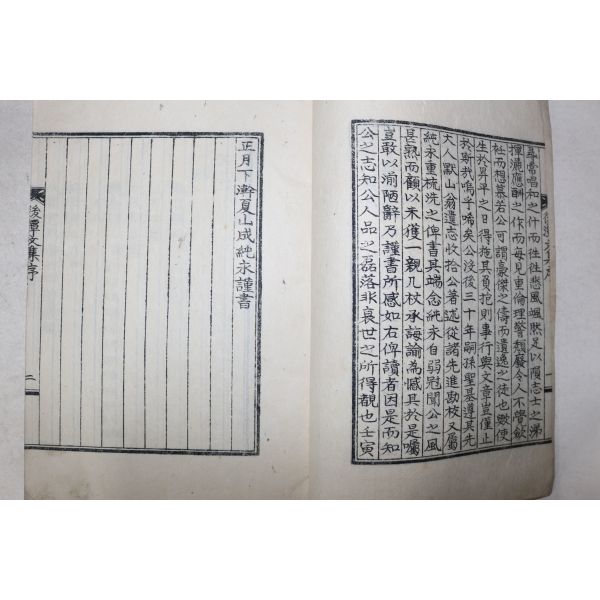 尋常唱和之什而往往悲風颯然足以隕志士之涕
揮灑應酬之作而每見重倫理警頹廢令人不覺斂
衽而想慕若公可謂豪傑之儔而遺逸之徒也歟使
生於昇平之日得拖其負抱則事行與文章豈僅止
於斯哉嗚乎唏矣公沒後三十年嗣孫聖基遵其先
大人默山翁遺志收拾公著述從諸先進勘校又屬
純永重梳洗之俾書其端念純永自弱冠聞公之風
甚熟而顧以未獲一親几杖承誨論為憾其於是囑
豈敢以謭陋辭乃謹書所感如右俾讀者因是而知
公之志知公人品之磊落非衰世之所得觀也壬寅
後潭文集序
一
正月下澣夏山成純永謹書
後潭文集序
二